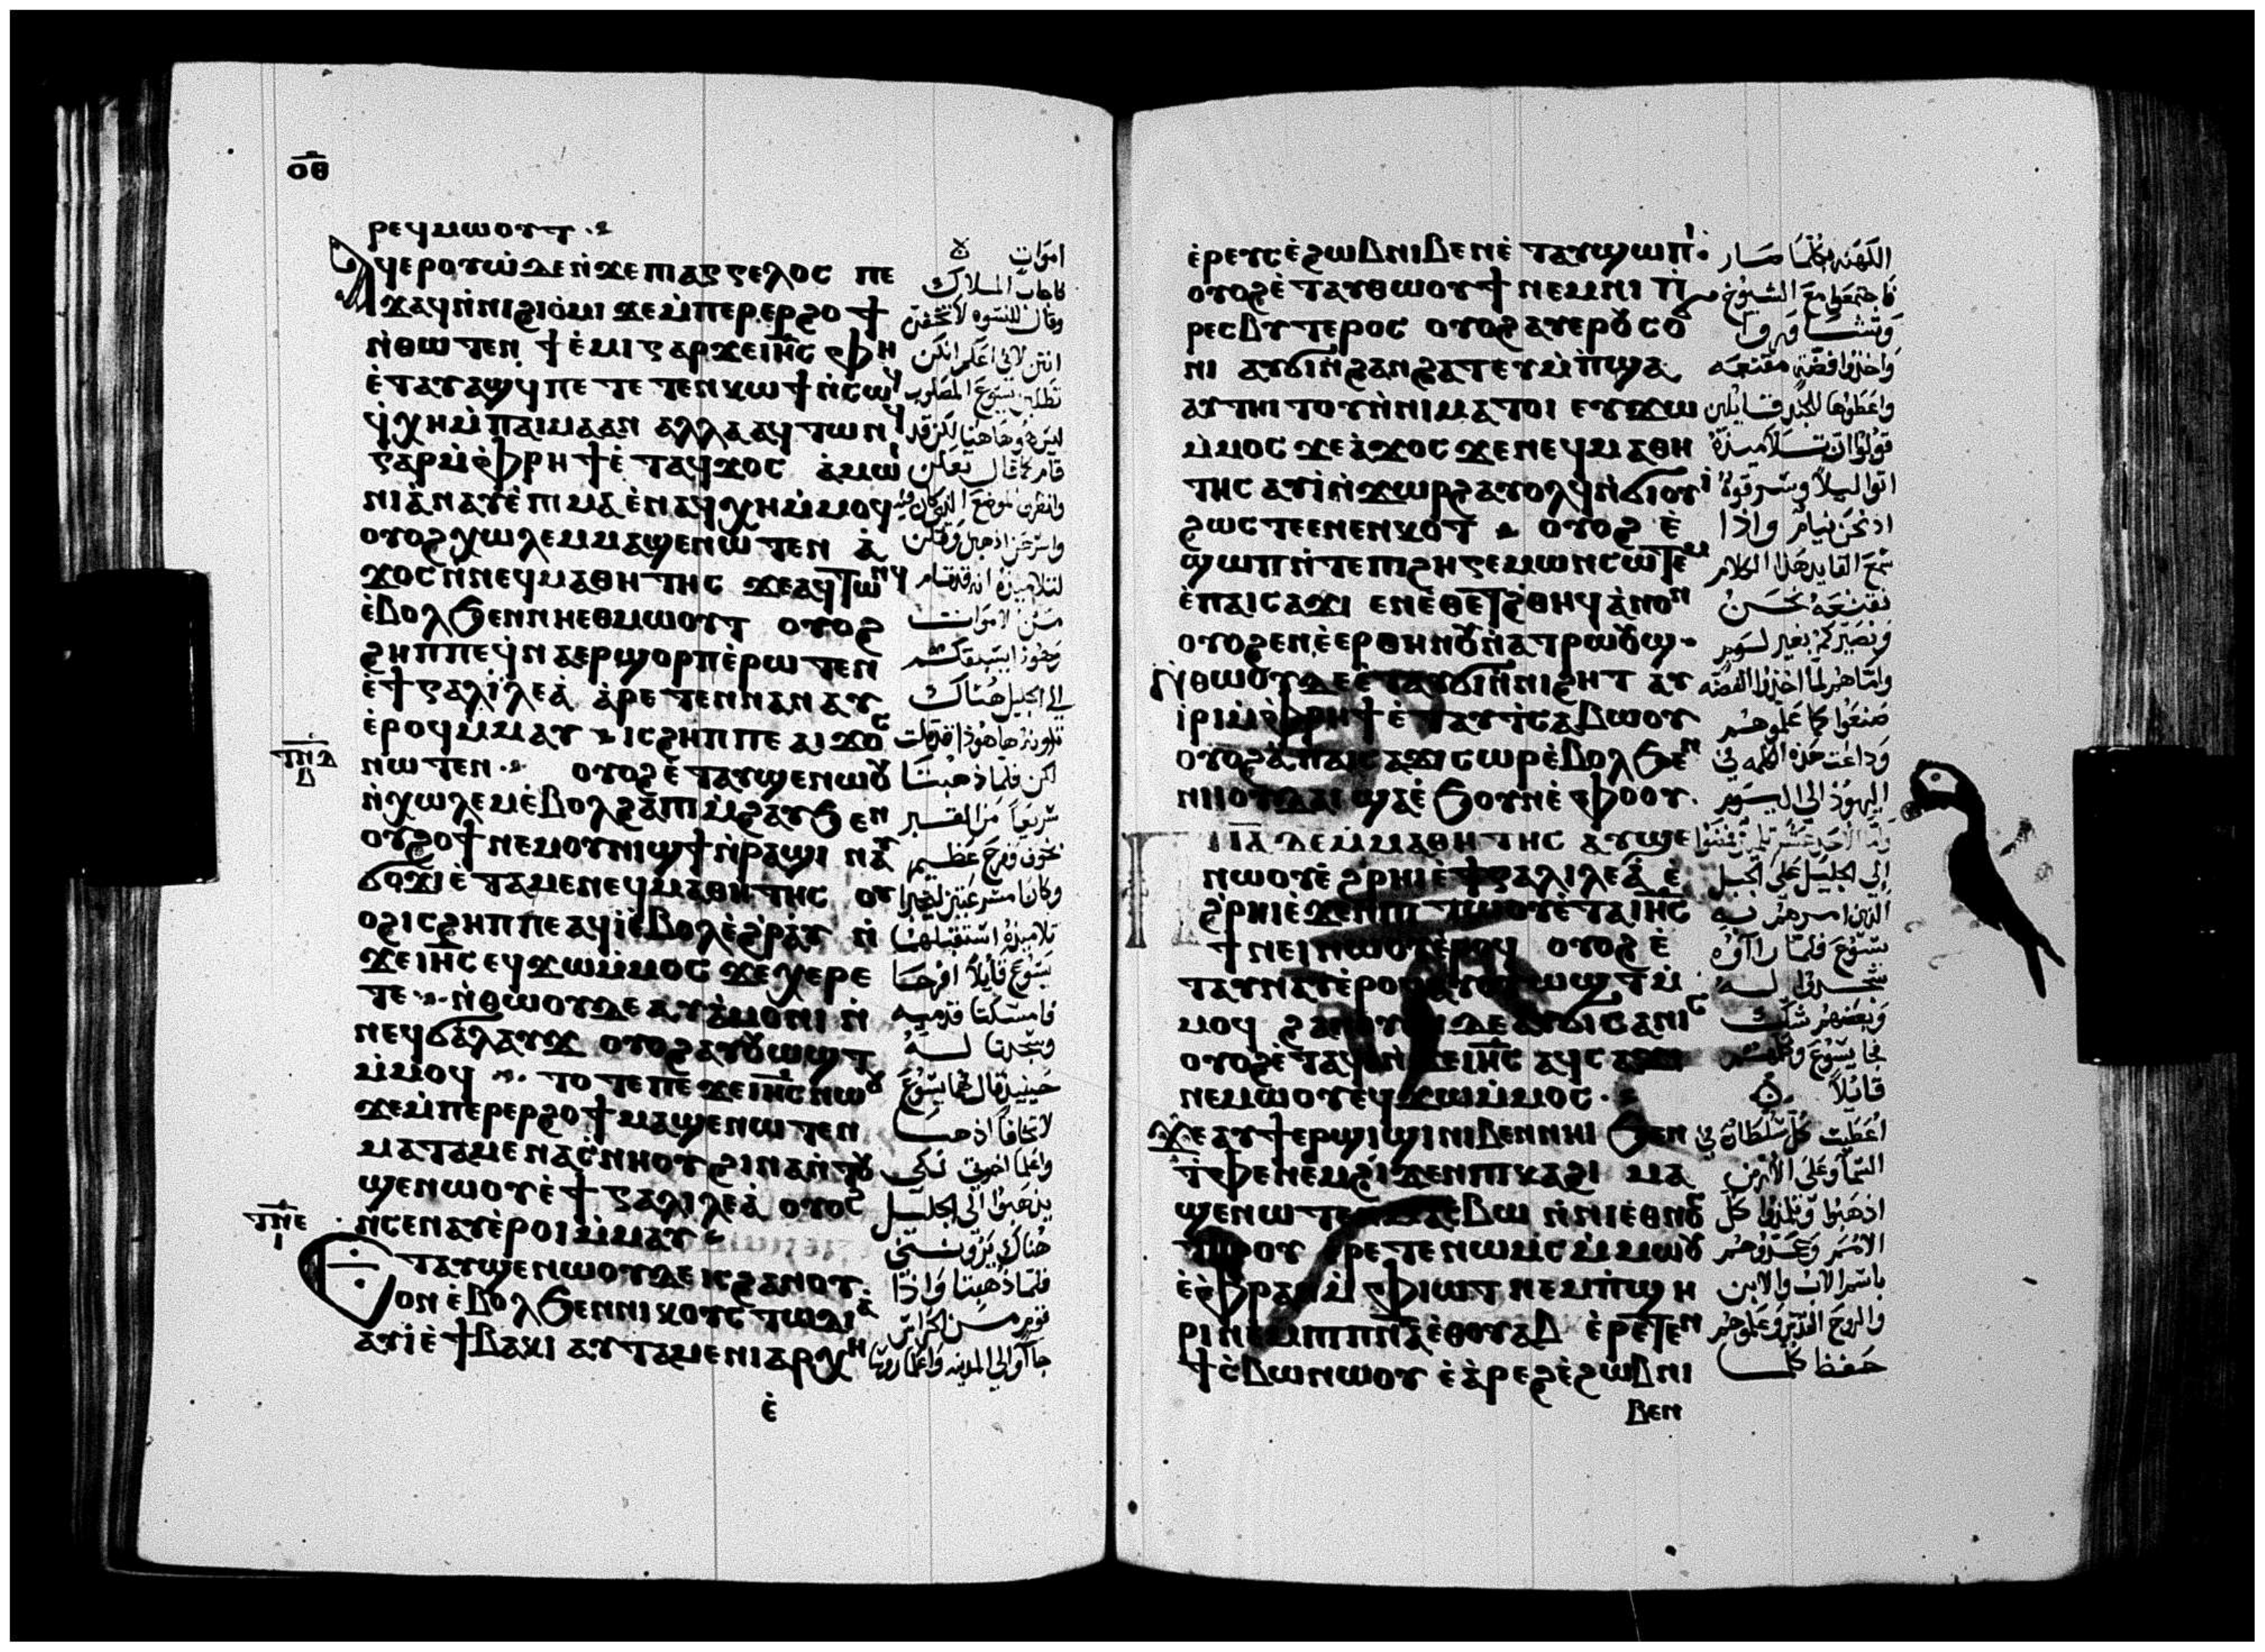 ⲟ̅ⲑ̅
ⲣⲉϥⲙⲱⲟⲩⲧ
ⲁϥⲉⲣⲟⲩⲱ̀ ⲇⲉ ⲛ̀ϫⲉ ⲡⲓⲁⲅⲅⲉⲗⲟⲥ ⲡⲉ
ϫⲁϥ ⲛ̀ⲛⲓϩⲓⲟ̀ⲙⲓ ϫⲉ ⲙ̀ⲡⲉⲣⲉⲣϩⲟϯ
ⲛ̀ⲑⲱⲧⲉⲛ ϯⲉ̀ⲙⲓ ⲅⲁⲣ ϫⲉ ⲓⲏ̅ⲥ ⲫⲏ
ⲉ̀ⲧⲁⲩⲁϣϥ ⲡⲉⲧⲉⲧⲉⲛⲕⲱϯ ⲛ̀ⲥⲱϥ
ϥ̀ⲭⲏ ⲙ̀ⲡⲁⲓⲙⲁ ⲁⲛ ⲁⲗⲗⲁ ⲁϥⲧⲱⲛϥ
ⲅⲁⲣ ⲙ̀ⲫⲣⲏϯ ⲉ̀ⲧⲁϥϫⲟⲥ ⲁ̀ⲙⲱⲓ
ⲛⲓ ⲁ̀ⲛⲁⲩ ⲉ̀ⲡⲓⲙⲁ ⲉ̀ⲛⲁϥⲭⲏ ⲙ̀ⲙⲟϥ
ⲟⲩⲟϩ ⲭⲱⲗⲉⲙ ⲙⲁϣⲉⲛⲱⲧⲉⲛ ⲁ̀
ϫⲟⲥ ⲛ̀ⲛⲉϥⲙⲁⲑⲏⲧⲏⲥ ϫⲉ ⲁϥⲧⲱⲛϥ
ⲉ̀ⲃⲟⲗϧⲉⲛ ⲛⲏⲉⲑⲙⲱⲟⲩⲧ ⲟⲩⲟϩ
ϩⲏⲡⲡⲉ ϥ̀ⲛⲁⲉⲣϣⲟⲣⲡ ⲉ̀ⲣⲱⲧⲉⲛ
ⲉ̀ϯⲅⲁⲗⲓⲗⲉⲁ̀ ⲁ̀ⲣⲉⲧⲉⲛⲛⲁⲛⲁⲩ
ⲉ̀ⲣⲟϥ ⲙ̀ⲙⲁⲩ ⲓⲥϩⲏⲡⲡⲉ ⲁⲓϫⲟⲥ
ⲛⲱⲧⲉⲛ ⲟⲩⲟϩ ⲉ̀ⲧⲁⲩϣⲉⲛⲱⲟⲩ
ⲛ̀ⲭⲱⲗⲉⲙ ⲉ̀ⲃⲟⲗϩⲁ ⲡⲓⲙ̀ϩⲁⲩ ϧⲉⲛ
ⲟⲩϩⲟϯ ⲛⲉⲙ ⲟⲩⲛⲓϣϯ ⲛ̀ⲣⲁϣⲓ ⲛⲁⲩ
ϭⲟϫⲓ ⲉ̀ⲧⲁⲙⲉ ⲛⲉϥⲙⲁⲑⲏⲧⲏⲥ ⲟⲩ
ⲟϩ ⲓⲥϩⲏⲡⲡⲉ ⲁϥⲓ̀ ⲉ̀ⲃⲟⲗ ⲉ̀ϩⲣⲁⲩ ⲛ̀
ϫⲉ ⲓⲏ̅ⲥ ⲉϥϫⲱ ⲙ̀ⲙⲟⲥ ϫⲉ ⲭⲉⲣⲉ
ⲧⲉ ⲛ̀ⲑⲱⲟⲩ ⲇⲉ ⲁⲩⲁ̀ⲙⲟⲛⲓ ⲛ̀
ⲛⲉϥϭⲁⲗⲁⲩϫ ⲟⲩⲟϩ ⲁⲩⲟⲩⲱϣⲧ
ⲙ̀ⲙⲟϥ ⲧⲟⲧⲉ ⲡⲉϫⲉ ⲓⲏ̅ⲥ ⲛⲱⲟⲩ
ϫⲉ ⲙ̀ⲡⲉⲣⲉⲣϩⲟϯ ⲙⲁϣⲉⲛⲱⲧⲉⲛ
ⲙⲁⲧⲁⲙⲉ ⲛⲁⲥ̀ⲛⲏⲟⲩ ϩⲓⲛⲁ ⲛ̀ⲧⲟⲩ
ϣⲉⲛⲱⲟⲩ ⲉ̀ϯⲅⲁⲗⲓⲗⲉⲁ̀ ⲟⲩⲟϩ
ⲛ̀ⲥⲉⲛⲁⲩ ⲉ̀ⲣⲟⲓ ⲙ̀ⲙⲁⲩ
ⲉⲧⲁⲩϣⲉⲛⲱⲟⲩ ⲇⲉ ⲓⲥ ϩⲁⲛⲟⲩ
ⲟⲛ ⲉ̀ⲃⲟⲗϧⲉⲛ ⲛⲓⲕⲟⲩⲥⲧⲱⲇⲓⲁ̀
ⲁⲩⲓ̀ ⲉ̀ϯⲃⲁⲕⲓ ⲁⲩⲧⲁⲙⲉ ⲛⲓⲁⲣⲭⲏ
ⲉ̀
اموات
فاجاب الملاك
وقال للنسوه لا تخفن
انتن لاني اعلم انكن
تطلبن يسوع المصلوب
ليس هو هاهنا لكن قد
قام كما قال تعالين
وانظرن الموضع الذي كان فيه
واسرعن اذهبن وقلن
لتلاميذه انه قد قام
من الاموات
وهوذا يسبقكم
الي الجليل هناك
ترونه هاهوذا قد قلت
لكن فلما ذهبتا
سريعا من القبر
بخوف وفرح عظيم
وكانا مسرعتين ليخبرا
تلاميذه استقبلهما
يسوع قايلا افرحا
فامسكتا قدميه
وسجدتا له
حينيذ قال لهما يسوع
لا تخافا اذهبا
واعلما اخوتي لكي
يذهبوا الي الجليل
هناك يروننى
فلما ذهبتا واذا
قوم من الحراس
جاوا الي المدينه واعلموا روسا
ⲧ̅ⲡ̅ⲇ̅
ⲇ
ⲧ̅ⲛ̅ⲉ
ⲓ
ⲉ̀ⲣⲉⲩⲥ ⲉ̀ϩⲱⲃ ⲛⲓⲃⲉⲛ ⲉ̀ⲧⲁⲩϣⲱⲡⲓ
ⲟⲩⲟϩ ⲉ̀ⲧⲁⲩⲑⲱⲟⲩϯ ⲛⲉⲙ ⲛⲓⲡ̀
ⲣⲉⲥⲃⲩⲧⲉⲣⲟⲥ ⲟⲩⲟϩ ⲁⲩⲉⲣⲟⲩⲥⲟϭ
ⲛⲓ ⲁⲩϭⲓ ⲛ̀ϩⲁⲛϩⲁⲧ ⲉⲩⲙ̀ⲡϣⲁ
ⲁⲩⲧⲏⲓⲧⲟⲩ ⲛ̀ⲛⲓⲙⲁⲧⲟⲓ ⲉⲩϫⲱ
ⲙ̀ⲙⲟⲥ ϫⲉ ⲁ̀ϫⲟⲥ ϫⲉ ⲛⲉϥⲙⲁⲑⲏ
ⲧⲏⲥ ⲁⲩⲓ̀ ⲛ̀ϫⲱⲣϩ ⲁⲩⲟⲗϥ ⲛ̀ϭⲓⲟⲩⲓ̀
ϩⲱⲥⲧⲉ ⲉⲛⲉⲛⲕⲟⲧ ⲟⲩⲟϩ ⲉ̀
ϣⲱⲡ ⲛ̀ⲧⲉ ⲡⲓϩⲏⲅⲉⲙⲱⲛ ⲥⲱⲧⲉⲙ
ⲉ̀ⲡⲁⲓⲥⲁϫⲓ ⲉⲛⲉ̀ⲑⲉⲧ ϩ̀ⲑⲏϥ ⲁ̀ⲛⲟⲛ
ⲟⲩⲟϩ ⲉⲛⲉ̀ⲉⲣ ⲑⲏⲛⲟⲩ ⲛ̀ⲁⲧⲣⲱⲟⲩϣ
ⲛ̀ⲑⲱⲟⲩ ⲇⲉ ⲉ̀ⲧⲁⲩϭⲓ ⲛ̀ⲛⲓϩⲁⲧ ⲁⲩ
ⲓ̀ⲣⲓ ⲙ̀ⲫⲣⲏϯ ⲉ̀ⲧⲁⲩⲧⲥⲁⲃⲱⲟⲩ
ⲟⲩⲟϩ ⲁ̀ ⲡⲁⲓⲥⲁϫⲓ ⲥⲱⲣ ⲉ̀ⲃⲟⲗϧⲉⲛ
ⲛⲓⲓⲟⲩⲇⲁⲓ ϣⲁ ⲉ̀ϧⲟⲩⲛ ⲉ̀ⲫⲟⲟⲩ
ⲡⲓⲓ̅ⲁ̅ ⲇⲉ ⲙ̀ⲙⲁⲑⲏⲧⲏⲥ ⲁⲩϣⲉ
ⲛⲱⲟⲩ ⲉ̀ϩⲣⲏⲓ ⲉ̀ϯⲅⲁⲗⲓⲗⲉⲁ̀ ⲉ̀
ϩⲣⲏⲓ ⲉ̀ϫⲉⲛ ⲡⲓⲧⲱⲟⲩ ⲉ̀ⲧⲁ ⲓⲏ̅ⲥ
ϯⲛⲉⲓ ⲛⲱⲟⲩ ⲉ̀ⲣⲟϥ ⲟⲩⲟϩ ⲉ̀
ⲧⲁⲩⲛⲁⲩ ⲉ̀ⲣⲟϥ ⲁⲩⲟⲩⲱϣⲧ ⲙ̀
ⲙⲟϥ ϩⲁⲛⲟⲩⲟⲛ ⲇⲉ ⲁⲩϭⲓⲥⲁⲛⲓⲥ
ⲟⲩⲟϩ ⲉ̀ⲧⲁϥⲓ̀ ⲛ̀ϫⲉ ⲓⲏ̅ⲥ ⲁϥⲥⲁϫⲓ
ⲛⲉⲙⲱⲟⲩ ⲉϥϫⲱ ⲙ̀ⲙⲟⲥ
ϫⲉ ⲁⲩϯ ⲉⲣϣⲓϣⲓ ⲛⲓⲃⲉⲛ ⲛⲏⲓ ϧⲉⲛ
ⲧ̀ⲫⲉ ⲛⲉⲙ ϩⲓϫⲉⲛ ⲡⲓⲕⲁϩⲓ ⲙⲁ
ϣⲉⲛⲱⲧⲉⲛ ⲙⲁⲥ̀ⲃⲱ ⲛ̀ⲛⲓⲉⲑⲛⲟⲥ
ⲧⲏⲣⲟⲩ ⲉⲣⲉⲧⲉⲛⲱⲙⲥ ⲙ̀ⲙⲱⲟⲩ
ⲉ̀ⲫⲣⲁⲛ ⲙ̀ⲫⲓⲱⲧ ⲛⲉⲙ ⲡ̀ϣⲏ
ⲣⲓ ⲛⲉⲙ ⲡⲓⲡ̅ⲛ̅ⲁ̅ ⲉⲑⲟⲩⲁⲃ ⲉ̀ⲣⲉⲧⲉⲛ
ϯⲥ̀ⲃⲱ ⲛⲱⲟⲩ ⲉ̀ⲁ̀ⲣⲉϩ ⲉ̀ϩⲱⲃ ⲛⲓ
ⲃⲉⲛ
الكهنه بكلما صار
فاجتمعوا مع الشيوخ
وتشاوروا
واخذوا فضة مقنعه
واعطوها للجند قايلين
قولوا ان تلاميذه
اتوا ليلا وسرقوه
اذ نحن نيام واذا
سمع القايد هذا الكلام
نقنعه نحن
ونصيركم بغير لسوم
واما هم لما اخذوا الفضه
صنعوا كما علموهم
وذاعت هذه الكلمه في
اليهود الي اليوم
الي الجليل علي الجبل
الذي امرهم به
يسوع فلما راوه
سجدوا له
وبعضهم شك
فجا يسوع وكلمهم
قائلا
اعطيت كل سلطان في
السما وعلى الارض
اذهبوا وتلمذوا كل
الامم وعمدوهم
باسم الاب والابن
والروح القدس وعلموهم
حفظ كل